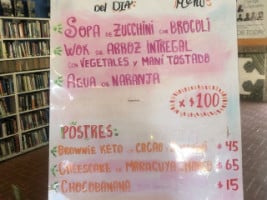 DEL DIA:
SOPA DE ZUCCHINI CON BROCOLI
WOK DE ARROZ INTREGAL
CON VEGETALES Y MANÍ TOSTADO
AGUA DE NARANJA
x $100
POSTRES:
BROWNIE KETO DE CACAO $45
CHEESCAKE DE MARACUYA $65
CHOCOBANANA $15